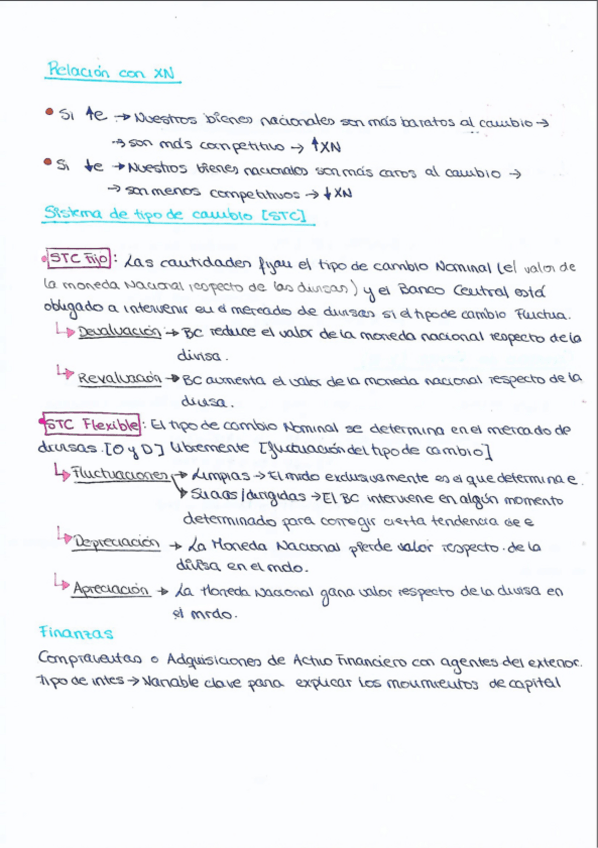 Relación con XN
• Si ↑e → Nuestros bienes nacionales son más baratos al cambio →
→ son más competitivo → ↑XN
• Si ↓e → Nuestros bienes nacionales son más caros al cambio →
→ son menos competitivos → ↓XN
Sistema de tipo de cambio [STC]
• STC Fijo: Las cantidades fijan el tipo de cambio Nominal (el valor de
la moneda Nacional respecto de las divisas) y el Banco Central está
obligado a intervenir en el mercado de divisas si el tipo de cambio Fluctua.
↳ Devaluación → BC reduce el valor de la moneda nacional respecto de la
divisa.
↳ Revaluación → BC aumenta el valor de la moneda nacional respecto de la
divisa.
• STC Flexible: El tipo de cambio Nominal se determina en el mercado de
divisas. [O y D] Libremente [fluctuación del tipo de cambio]
↳ Fluctuaciones → Limpias → El mrdo exclusivamente es el que determina e.
→ Sucias/dirigidas → El BC interviene en algún momento
determinado para corregir cierta tendencia de e
↳ Depreciación → La Moneda Nacional pierde valor respecto de la
divisa en el mdo.
↳ Apreciación → La Moneda Nacional gana valor respecto de la divisa en
el mrdo.
Finanzas
Compraventas o Adquisiciones de Activo Financiero con agentes del exterior.
Tipo de intes → Variable clave para explicar los movimientos de capital